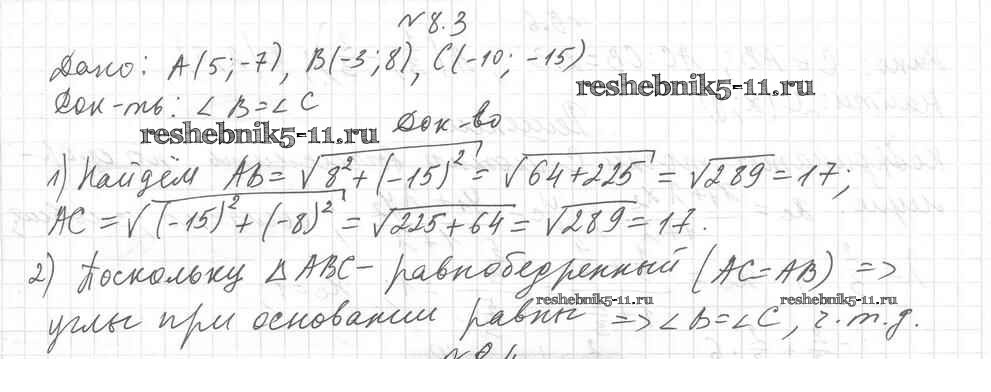 №8.3
Дано: A(5; -7), B(-3; 8), C(-10; -15)
reshebnik5-11.ru
Док-ть: ∠B=∠C
reshebnik5-11.ru
Док-во
1) Найдём AB = √(8² + (-15)²) = √(64+225) = √289 = 17;
AC = √((-15)² + (-8)²) = √(225+64) = √289 = 17.
2) Поскольку △ABC – равнобедренный (AC=AB) =>
reshebnik5-11.ru reshebnik5-11.ru
углы при основании равны => ∠B=∠C, ч.т.д.